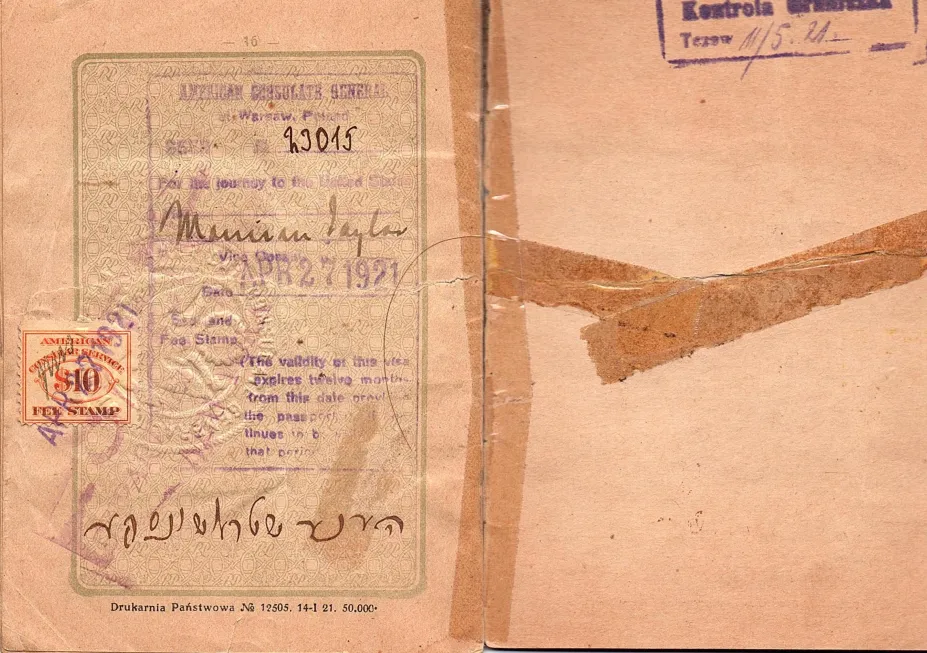 — 16 —
AMERICAN CONSULATE GENERAL
at Warsaw, Poland
SEEN № 23015
For the journey to the United States
Taylor
Vice Consul
APR 27 1921
Date
Seal and
Fee Stamp
(The validity of this visa
expires twelve months
from this date
the passport
tinues to b
that period
AMERICAN
CONSULAR SERVICE
$10
FEE STAMP
הענע שטראשונסקע
Drukarnia Państwowa № 12505. 14-I 21. 50.000.
Kontrola Graniczna
Tczew 11/5. 21.